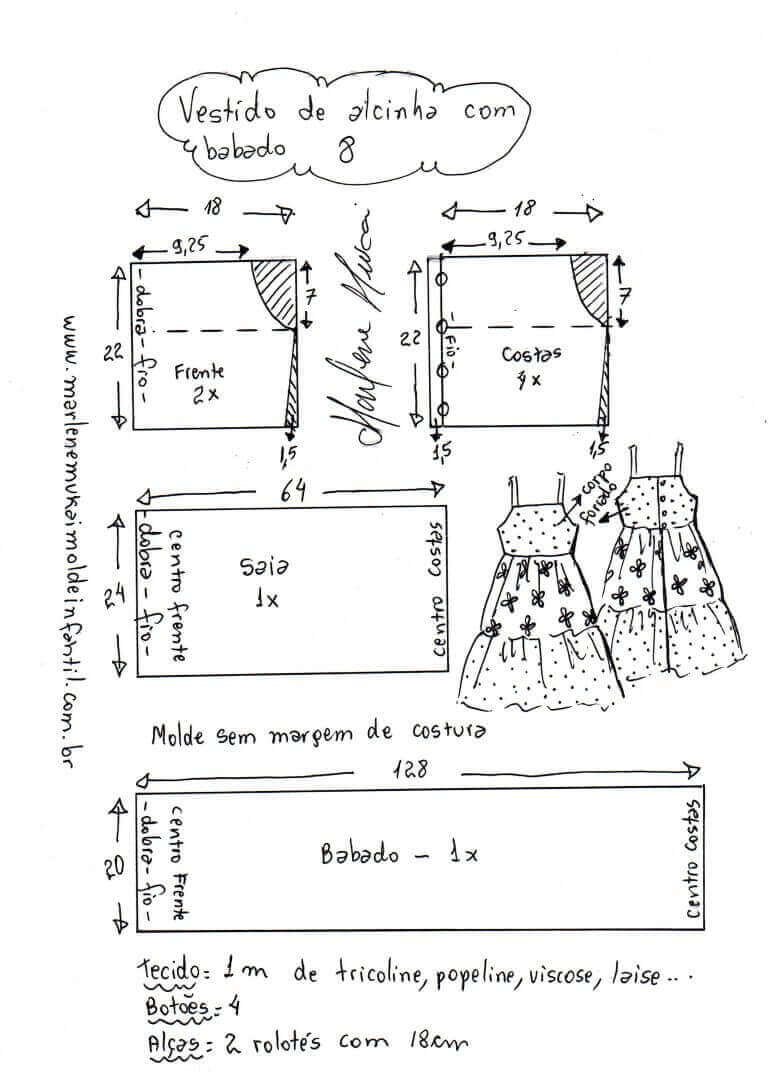 Vestido de alcinha com
babado 8
18
9,25
7
22
- dobra - fio -
Frente
2x
1,5
Marlene Mukai
18
9,25
7
22
- Fio -
Costas
4x
1,5
1,5
www.marlenemukaimoldeinfantil.com.br
64
24
- dobra - fio -
centro frente
Saia
1x
centro costas
corpo
forrado
Molde sem margem de costura
128
20
- dobra - fio -
centro Frente
Babado - 1x
Centro Costas
Tecido = 1 m de tricoline, popeline, viscose, laise...
Botões = 4
Alças = 2 rolotés com 18cm